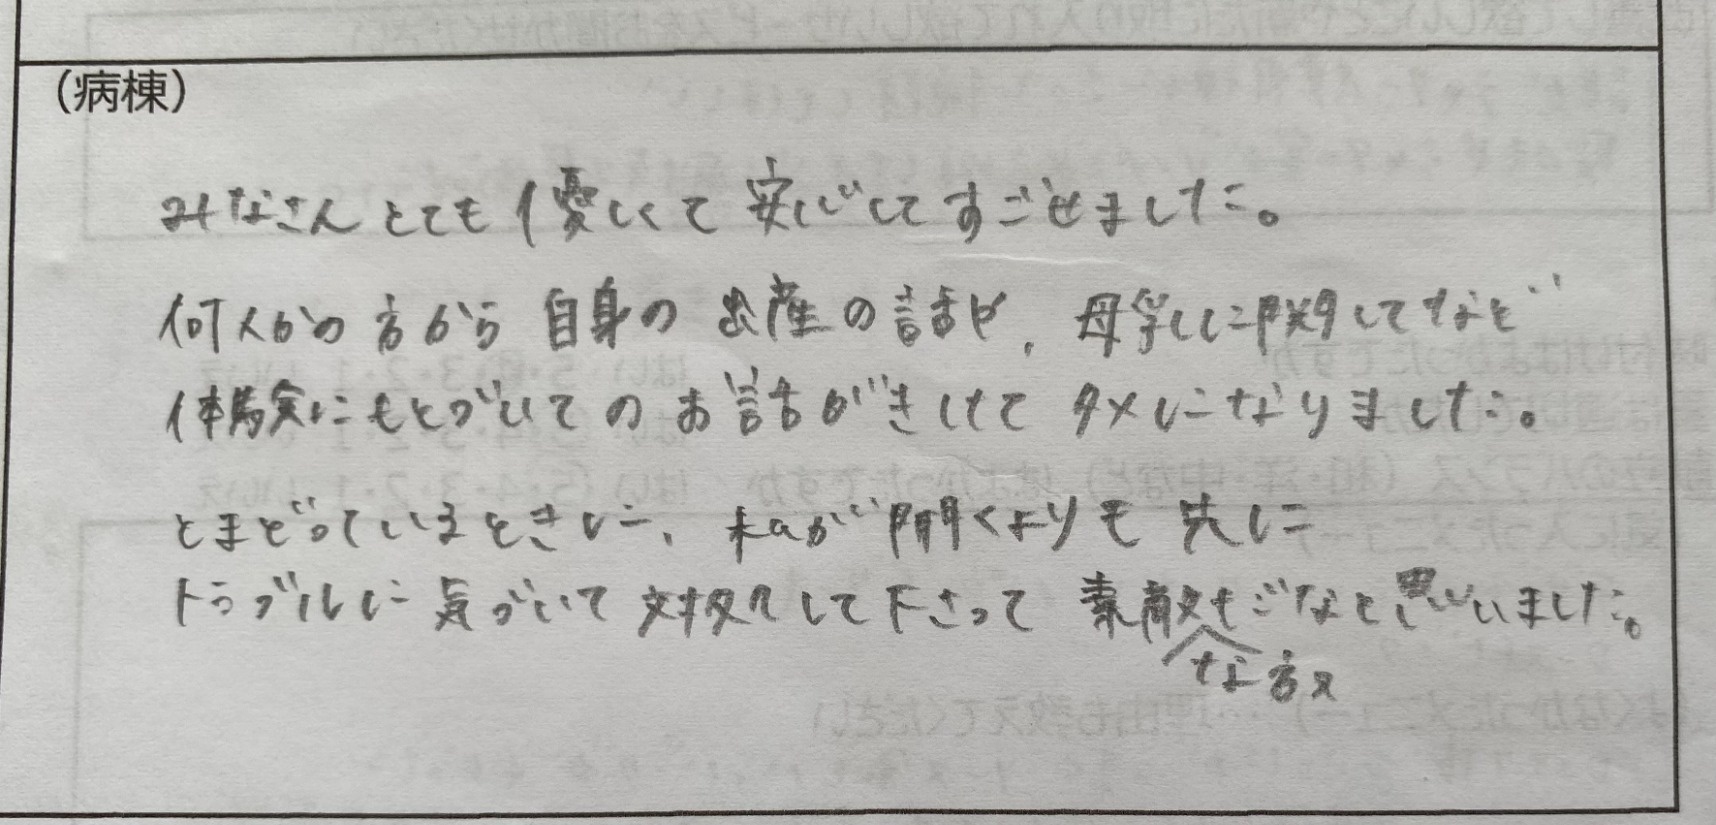 (病棟)
みなさんとても優しくて安心してすごせました。
何人かの方から自身の出産の話や、母乳に関してなど
体験にもとづいてのお話がきけてタメになりました。
とまどっているときに、私が聞くよりも先に
トラブルに気づいて対処して下さって素敵だなと思いました。
な方々